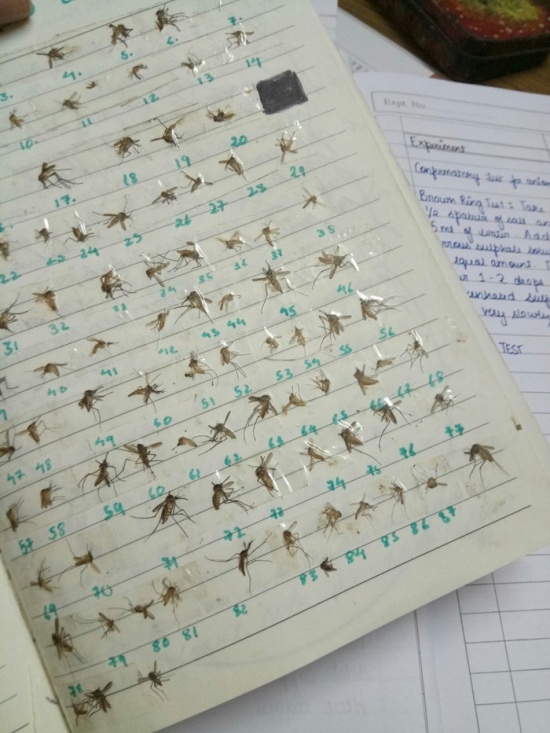 3. 4. 5. 6. 7.
10. 11 12 13 14
17. 18 19 20
22 23 24 25 26 27 28 29
31 32 33 34 35 36 37 38
40 41 42 43 44 45 46
47 48 49 60 51 52 53 54 55 56
57 58 59 60 61 62 63 64 65 66 67 68
69 70 71 72 73 74 75 76 77
78 79 80 81 82 83 84 85 86 87
Expt. No.
Experiment
Confirmatory test for
Brown Ring Test : Take
1/2 spatula of salt
5 ml of water. Add
sulphate
equal amount.
1-2 drops
very slowly
TEST